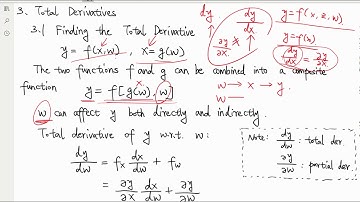 3. Total Derivatives
3.1 Finding the Total Derivative
y = f(x,w), x = g(w)
The two functions f and g can be combined into a composite
function y = f[g(w), w]
w can affect y both directly and indirectly.
Total derivative of y w.r.t. w:
dy/dw = fₓ dx/dw + f_w
= ∂y/∂x dx/dw + ∂y/∂w
dy
dy/dx
∂y/∂x
y = f(x, z, w)
y = f(x)
dy/dx = ∂y/∂x
x
w → x → y
w
Note: dy/dw : total der.
∂y/∂w : partial der.